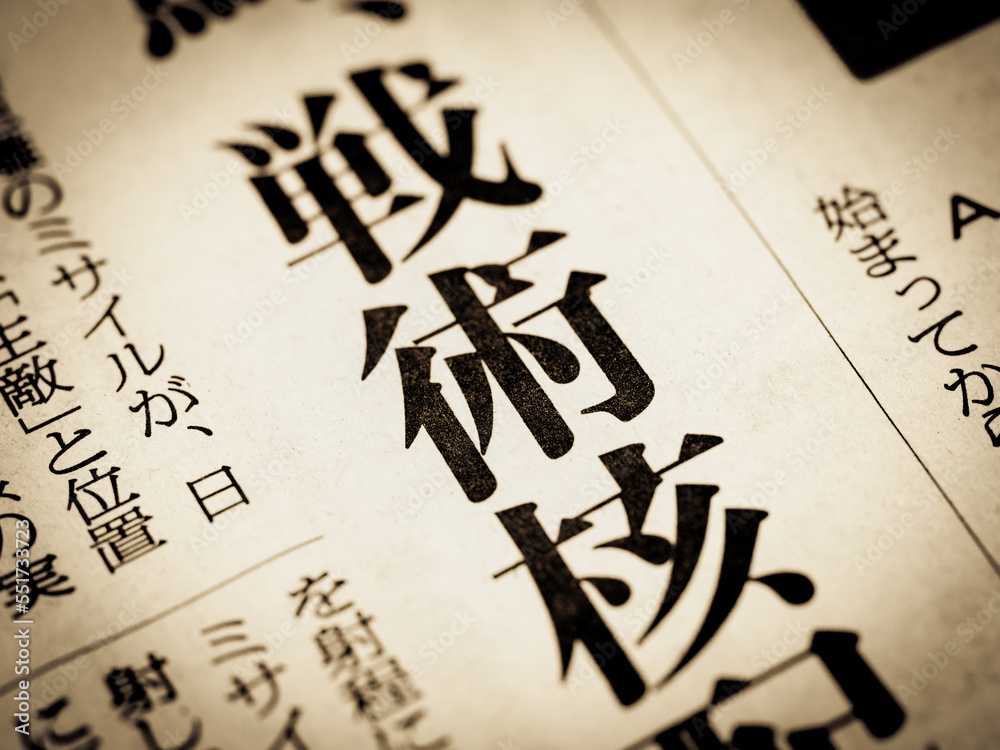 戦術核
A
始まってか
のミサイルが、日
主敵」と位置
の実
を射程
ミサイ
射し
に
Adobe Stock | #551733723
Adobe Stock